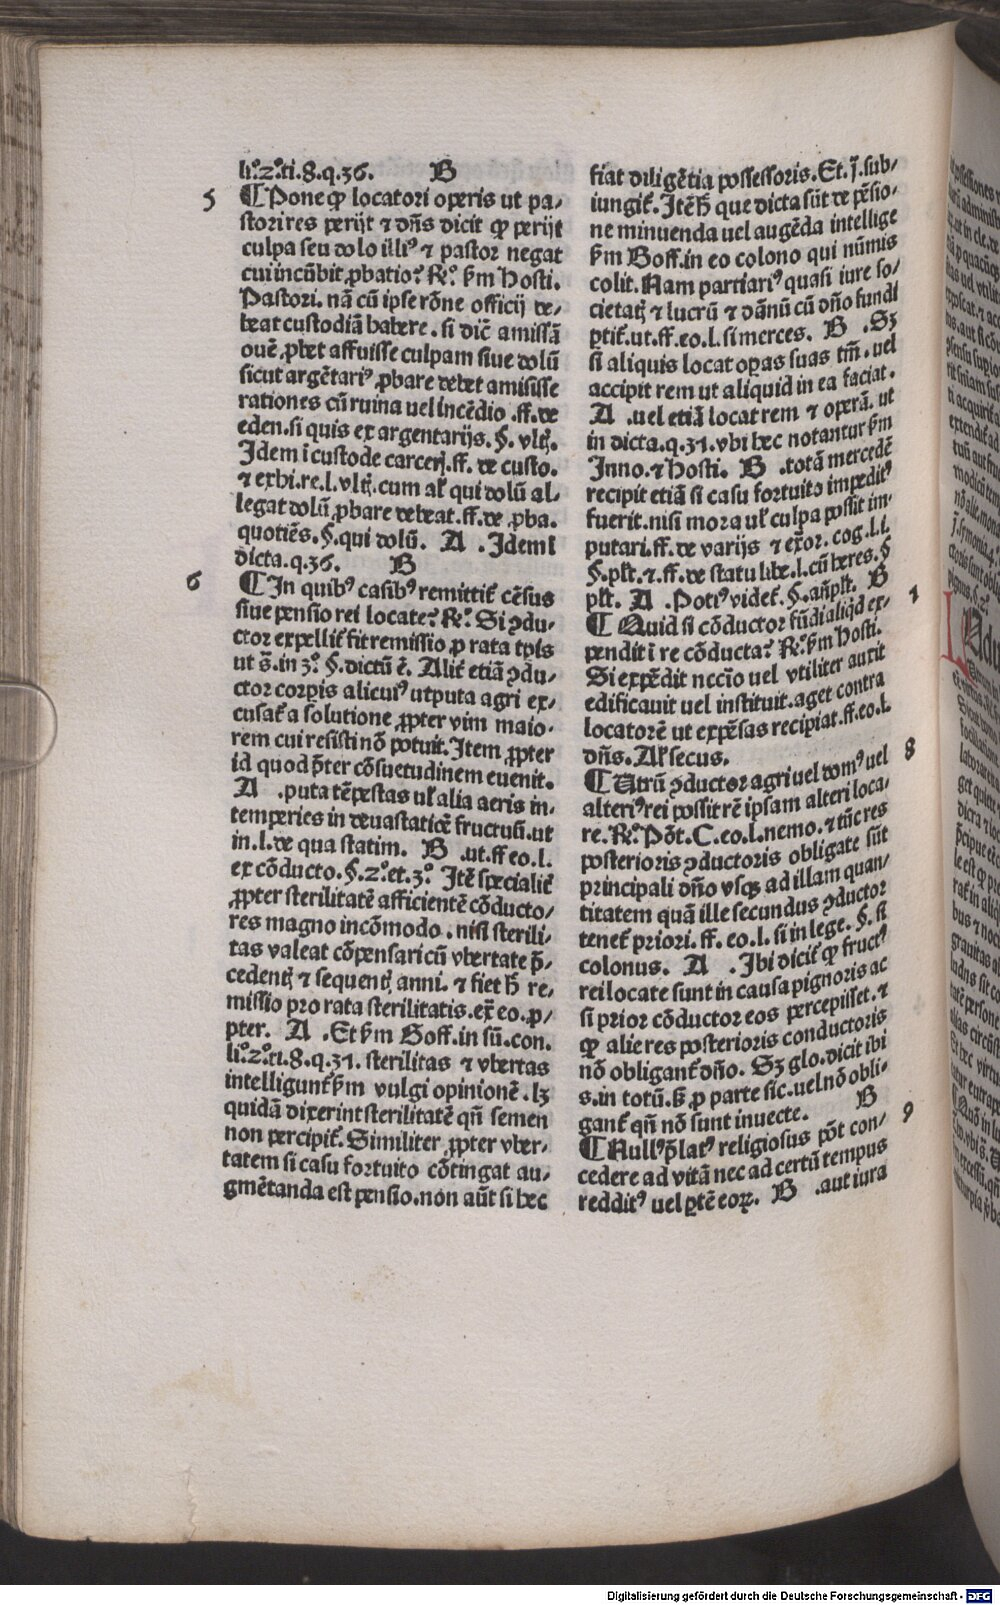 li.º2º.ti.8.q.36. B
5 ¶ Pone ꝙ locatori operis ut pa⸗
stori res perijt ⁊ dñs dicit ꝙ perijt
culpa seu dolo illiꝰ ⁊ pastor negat
cui incũbit ꝓbatio? Rº. ẜm Hosti.
Pastori. nã cũ ipse rõne officij de⸗
beat custodiã habere. si dic̃ amissã
ouẽ ꝓbet affuisse culpam siue dolũ
sicut argẽtariꝰ ꝓbare debet amisisse
rationes cũ ruina uel incẽdio .ff. de
eden. si quis ex argentarijs. §. vltꝭ.
Idem ĩ custode carcerꝭ. ff. de custo.
⁊ exhi. re. l. vltꝭ. cum al̃ qui dolũ al⸗
legat dolũ ꝓbare debeat. ff. de ꝓba.
quotiẽs. §. qui dolũ. A . Idem ĩ
dicta. q. 36. B
6 ¶ In quibꝰ casibꝰ remittit̃ cẽsus
siue pensio rei locate? Rº. Si ꝯdu⸗
ctor expellit̃ fit remissio ꝓ rata tꝑis
ut s̃. in 3º. §. dictũ ẽ. Alit̃ etiã ꝯdu⸗
ctor corꝑis alicuiꝰ utputa agri ex⸗
cusat̃ a solutione ꝓpter vim maio⸗
rem cui resisti nõ potuit. Item ꝓpter
id quod p̃ter cõsuetudinem euenit.
A . puta tẽpestas ul̃ alia aeris in⸗
temperies in deuastatiõe fructuũ. ut
in. l. de qua statim. B . ut. ff eo. l.
ex cõducto. §. 2º. et. 3º. Itẽ specialit̃
ꝓpter sterilitatẽ afficientẽ cõducto⸗
res magno incõmodo. nisi sterili⸗
tas valeat cõpensari cũ vbertate p̃⸗
cedentꝭ ⁊ sequentꝭ anni. ⁊ fiet h̃ re⸗
missio pro rata sterilitatis. ex̃ eo. ꝓ⸗
pter. A . Et ẜm Goff. in sũ. con.
li.º2º.ti.8.q.31. sterilitas ⁊ vbertas
intelligunt̃ ẜm vulgi opinionẽ. lꝫ
quidã dixerint sterilitatẽ qñ semen
non percipit̃. Similiter ꝓpter vber⸗
tatem si casu fortuito cõtingat au⸗
gmẽtanda est pensio. non aũt si hec
fiat diligẽtia possessoris. Et. j̃. sub⸗
iungit̃. Itẽ h̃ que dicta sũt de pẽsio⸗
ne minuenda uel augẽda intellige
ẜm Goff. in eo colono qui nũmis
colit. Nam partiariꝰ quasi iure so⸗
cietatꝭ ⁊ lucrũ ⁊ dãnũ cũ dño fundi
ꝑtit̃. ut. ff. eo. l. si merces. B . Sꝫ
si aliquis locat oꝑas suas tm̃. uel
accipit rem ut aliquid in ea faciat.
A . uel etiã locat rem ⁊ operã. ut
in dicta. q. 31. vbi hec notantur ẜm
Inno. ⁊ Hosti. B . totã mercedẽ
recipit etiã si casu fortuito impeditꝰ
fuerit. nisi mora ul̃ culpa possit im⸗
putari. ff. de varijs ⁊ ex̃or. cog. l. i.
§. pl̃t. ⁊. ff. de statu libe. l. cũ heres. §
pl̃t. A . Potiꝰ videt̃. §. añpl̃t. B
1 ¶ Quid si cõductor fũdi aliqd̃ ex⸗
pendit ĩ re cõducta? Rº. ẜm Hosti.
Si expẽdit nccĩo uel vtiliter auxit
edificauit uel instituit. aget contra
locatorẽ ut expẽsas recipiat. ff. eo. l.
dñs. Al̃ secus.
8 ¶ Utrũ ꝯductor agri uel domꝰ uel
alteriꝰ rei possit rẽ ipsam alteri loca⸗
re. Rº. Põt. C. eo. l. nemo. ⁊ tũc res
posterioris ꝯductoris obligate sũt
principali dño vsqꝫ ad illam quan⸗
titatem quã ille secundus ꝯductor
tenet̃ priori. ff. eo. l. si in lege. §. si
colonus. A . Ibi dicit̃ ꝙ fructꝰ
rei locate sunt in causa pignoris ac
si prior cõductor eos percepisset. ⁊
ꝙ alie res posterioris conductoris
nõ obligant̃ dño. Sꝫ glo. dicit ibi
s. in totũ. ꝑ ꝓ parte sic. uel nõ obli⸗
gant̃ qñ nõ sunt inuecte. B
9 ¶ Nullꝰ p̃latꝰ religiosus põt con⸗
cedere ad vitã nec ad certũ tempus
redditꝰ uel ꝑtẽ eoꝝ. B . aut iura
Digitalisierung gefördert durch die Deutsche Forschungsgemeinschaft - DFG